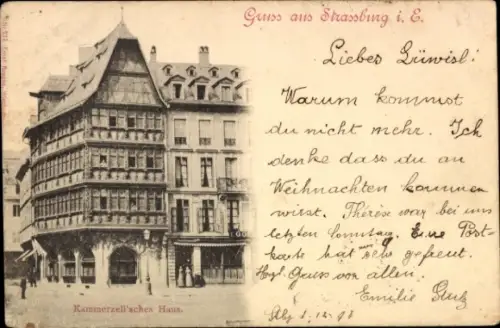 Gruss aus Strassburg i. E.
Liebes Lüwisl!
Warum kommst
du nicht mehr. Ich
denke dass du an
Weihnachten kommen
wirst. Thérèse war bei uns
letzten Sonntag. Eine Post-
karte hat sie gefreut.
Hzl. Gruss von allen.
Emilie
8.12.98
Kammerzell'sches Haus.